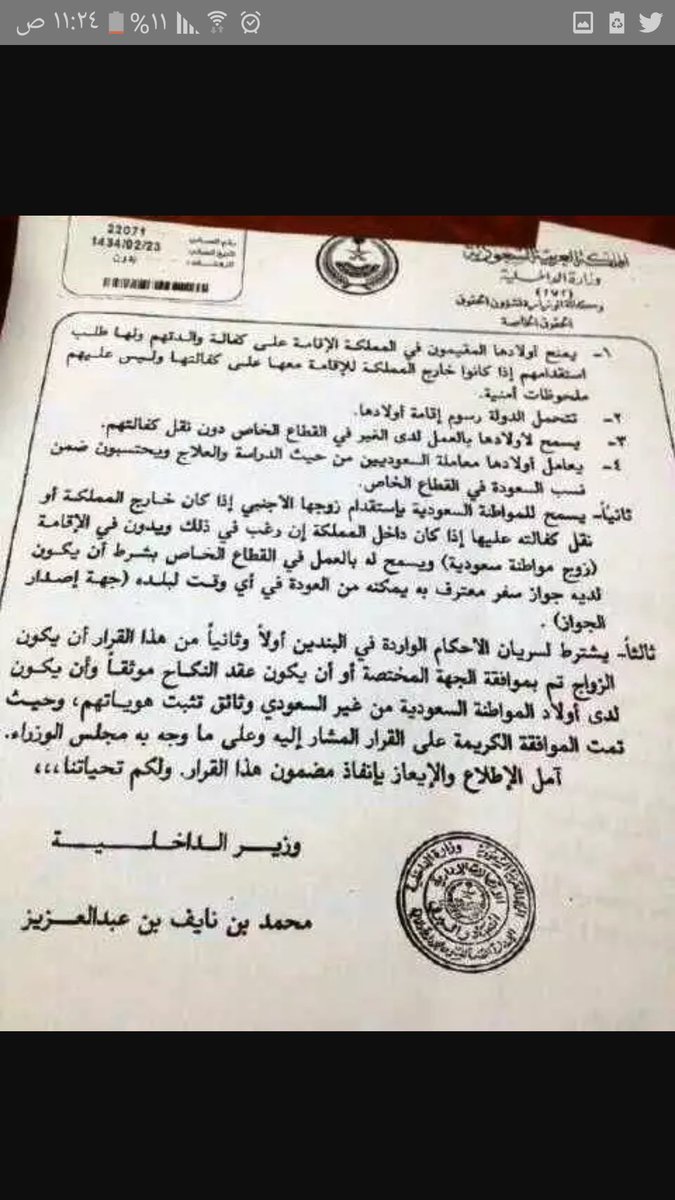 ١١:٢٤ ص
١١%
22071
1434/02/23
بدون
المملكة العربية السعودية
وزارة الداخلية
(٢٧٢)
الحقوق الخاصة
١- يمنح أولادها المقيمون في المملكة الإقامة على كفالة والدتهم ولها طلب
استقدامهم إذا كانوا خارج المملكة للإقامة معها على كفالتها وليس عليهم
ملحوظات أمنية.
٢- تتحمل الدولة رسوم إقامة أولادها.
٣- يسمح لاولادها بالعمل لدى الغير في القطاع الخاص دون نقل كفالتهم.
٤- يعامل أولادها معاملة السعوديين من حيث الدراسة والعلاج ويحتسبون ضمن
نسب السعودة في القطاع الخاص.
ثانياً- يسمح للمواطنة السعودية بإستقدام زوجها الاجنبي إذا كان خارج المملكة أو
نقل كفالته عليها إذا كان داخل المملكة إن رغب في ذلك ويدون في الإقامة
(زوج مواطنة سعودية) ويسمح له بالعمل في القطاع الخاص بشرط أن يكون
لديه جواز سفر معترف به يمكنه من العودة في أي وقت لبلده (جهة إصدار
الجواز) .
ثالثاً- يشترط لسريان الاحكام الواردة في البندين أولاً وثانياً من هذا القرار أن يكون
الزواج تم بموافقة الجهة المختصة أو أن يكون عقد النكاح موثقاً وأن يكون
لدى أولاد المواطنة السعودية من غير السعودي وثائق تثبت هوياتهم، وحيث
تمت الموافقة الكريمة على القرار المشار إليه وعلى ما وجه به مجلس الوزراء.
آمل الإطلاع والإيعاز بإنفاذ مضمون هذا القرار. ولكم تحياتنا،،،
وزير الداخلـــيـــة
محمد بن نايف بن عبدالعـزيز